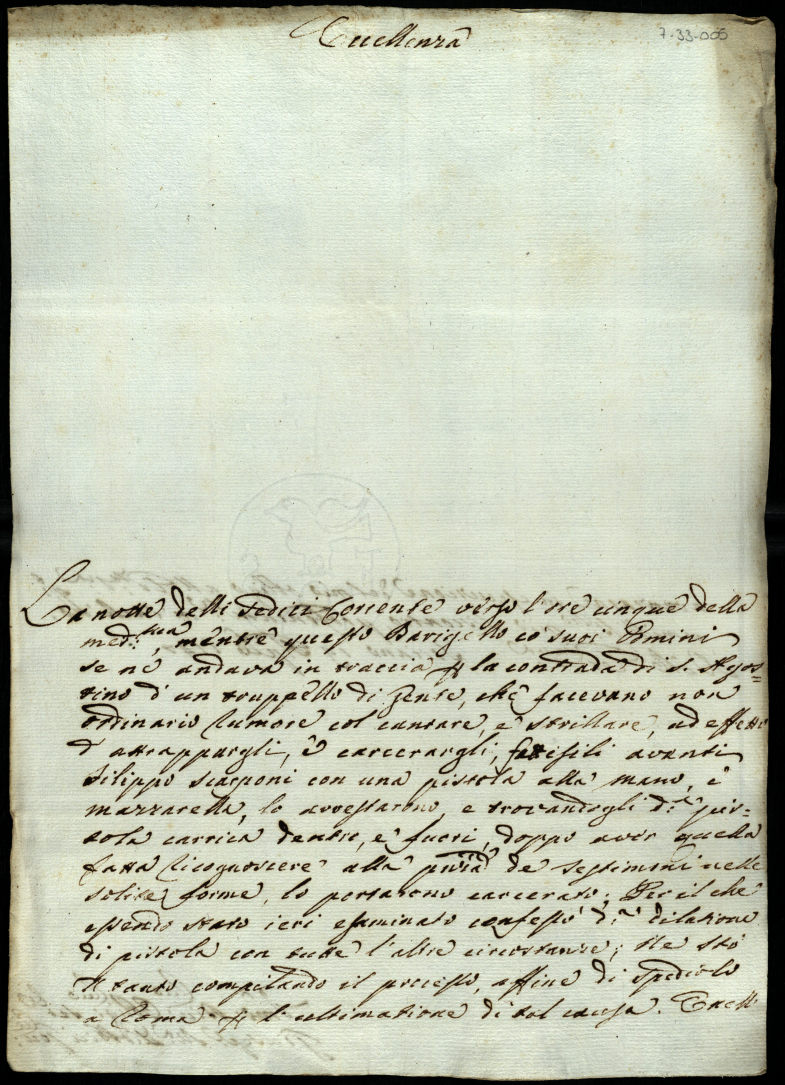 7-33-005
Eccellenza
La notte delli sedici Corrente verso l'ore cinque della
med:ma, mentre questo Barigello co' suoi Omini
se ne andava in traccia p la contrada di S. Agos=
tino d'un truppello di gente, che facevano non
ordinario rumore col cantare, e strillare, ad effetto
d'attrappargli, e carcerargli, fattisili avanti
Filippo Scarponi con una pistola alla mano, e
mazzarella, lo arrestarono, e trovandogli d:a pis=
tola carrica dentro, e fuori, doppo aver quella
fatta ricognoscere alla de Testimoni nelle
solite forme, lo portarono carcerato; Per il che
essendo stato ieri esaminato confessò d:a dilazione
di pistola con tutte l'altre circostanze; Ne stò
p tanto compilando il processo, affine di spedirlo
a Roma p l'ultimazione di tal causa. Tanto